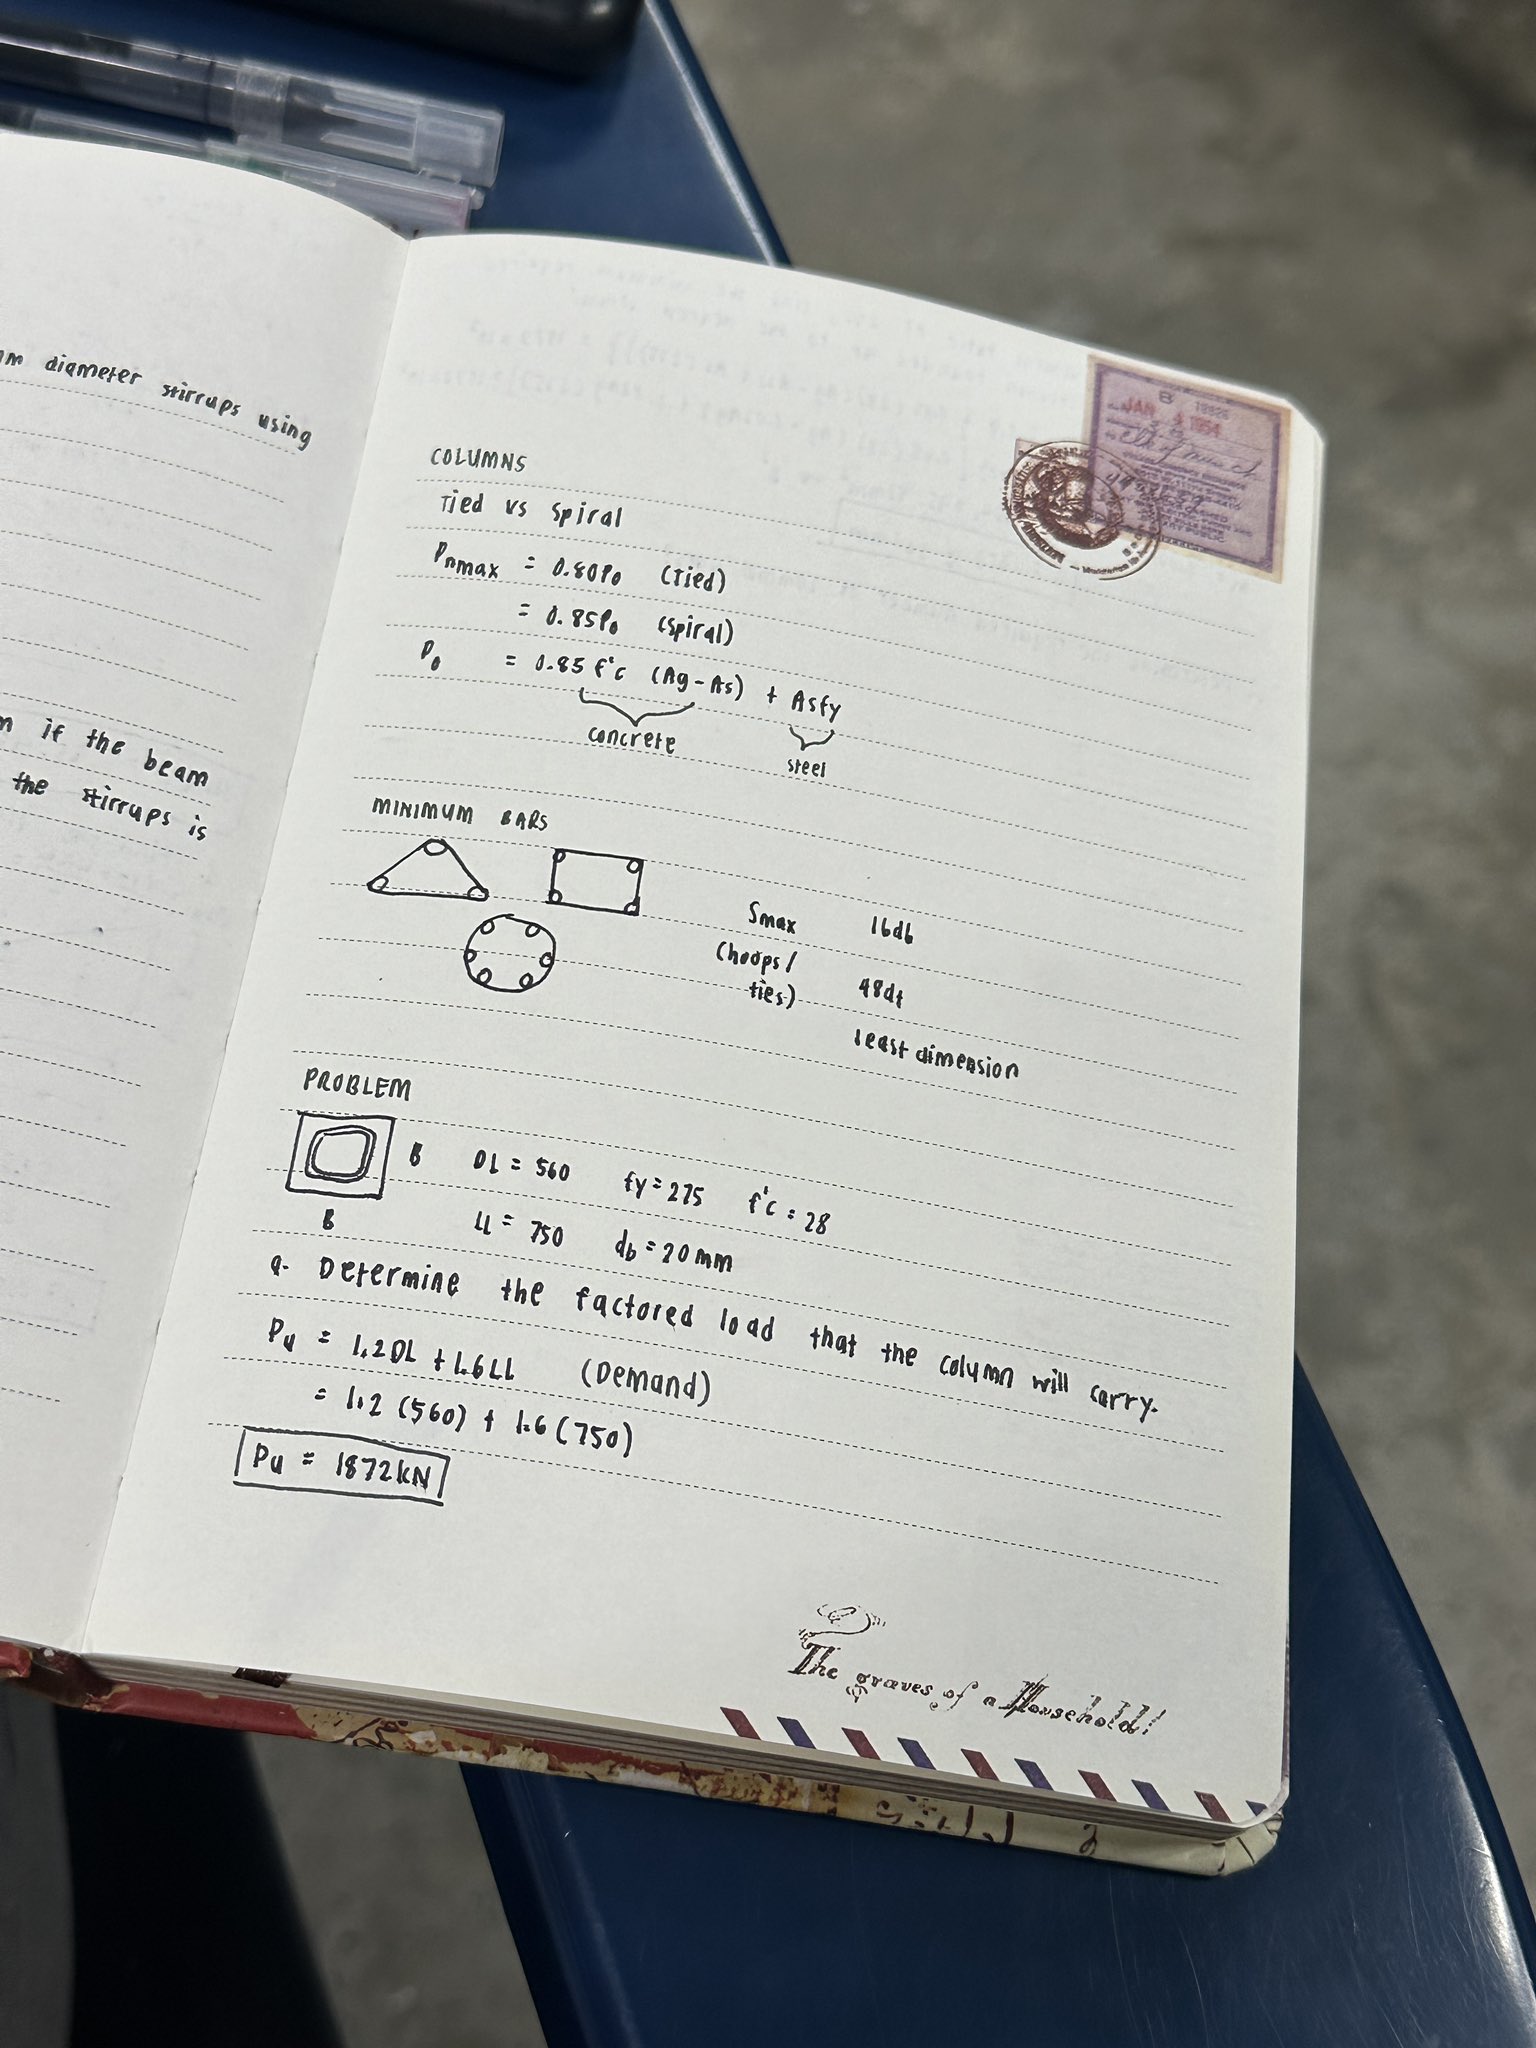 mm diameter stirrups using
m if the beam
the stirrups is
COLUMNS
Tied vs Spiral
Pnmax = 0.80Po (Tied)
= 0.85Po (Spiral)
Po = 0.85 f'c (Ag - As) + Asfy
concrete
steel
MINIMUM BARS
Smax 16db
(hoops/
ties) 48dt
least dimension
PROBLEM
B DL = 560 fy = 275 f'c = 28
B LL = 750 db = 20mm
a. Determine the factored load that the column will carry.
Pu = 1.2DL + 1.6LL (Demand)
= 1.2 (560) + 1.6 (750)
Pu = 1872kN
B 19826
JAN 4 1954
The graves of a Household!